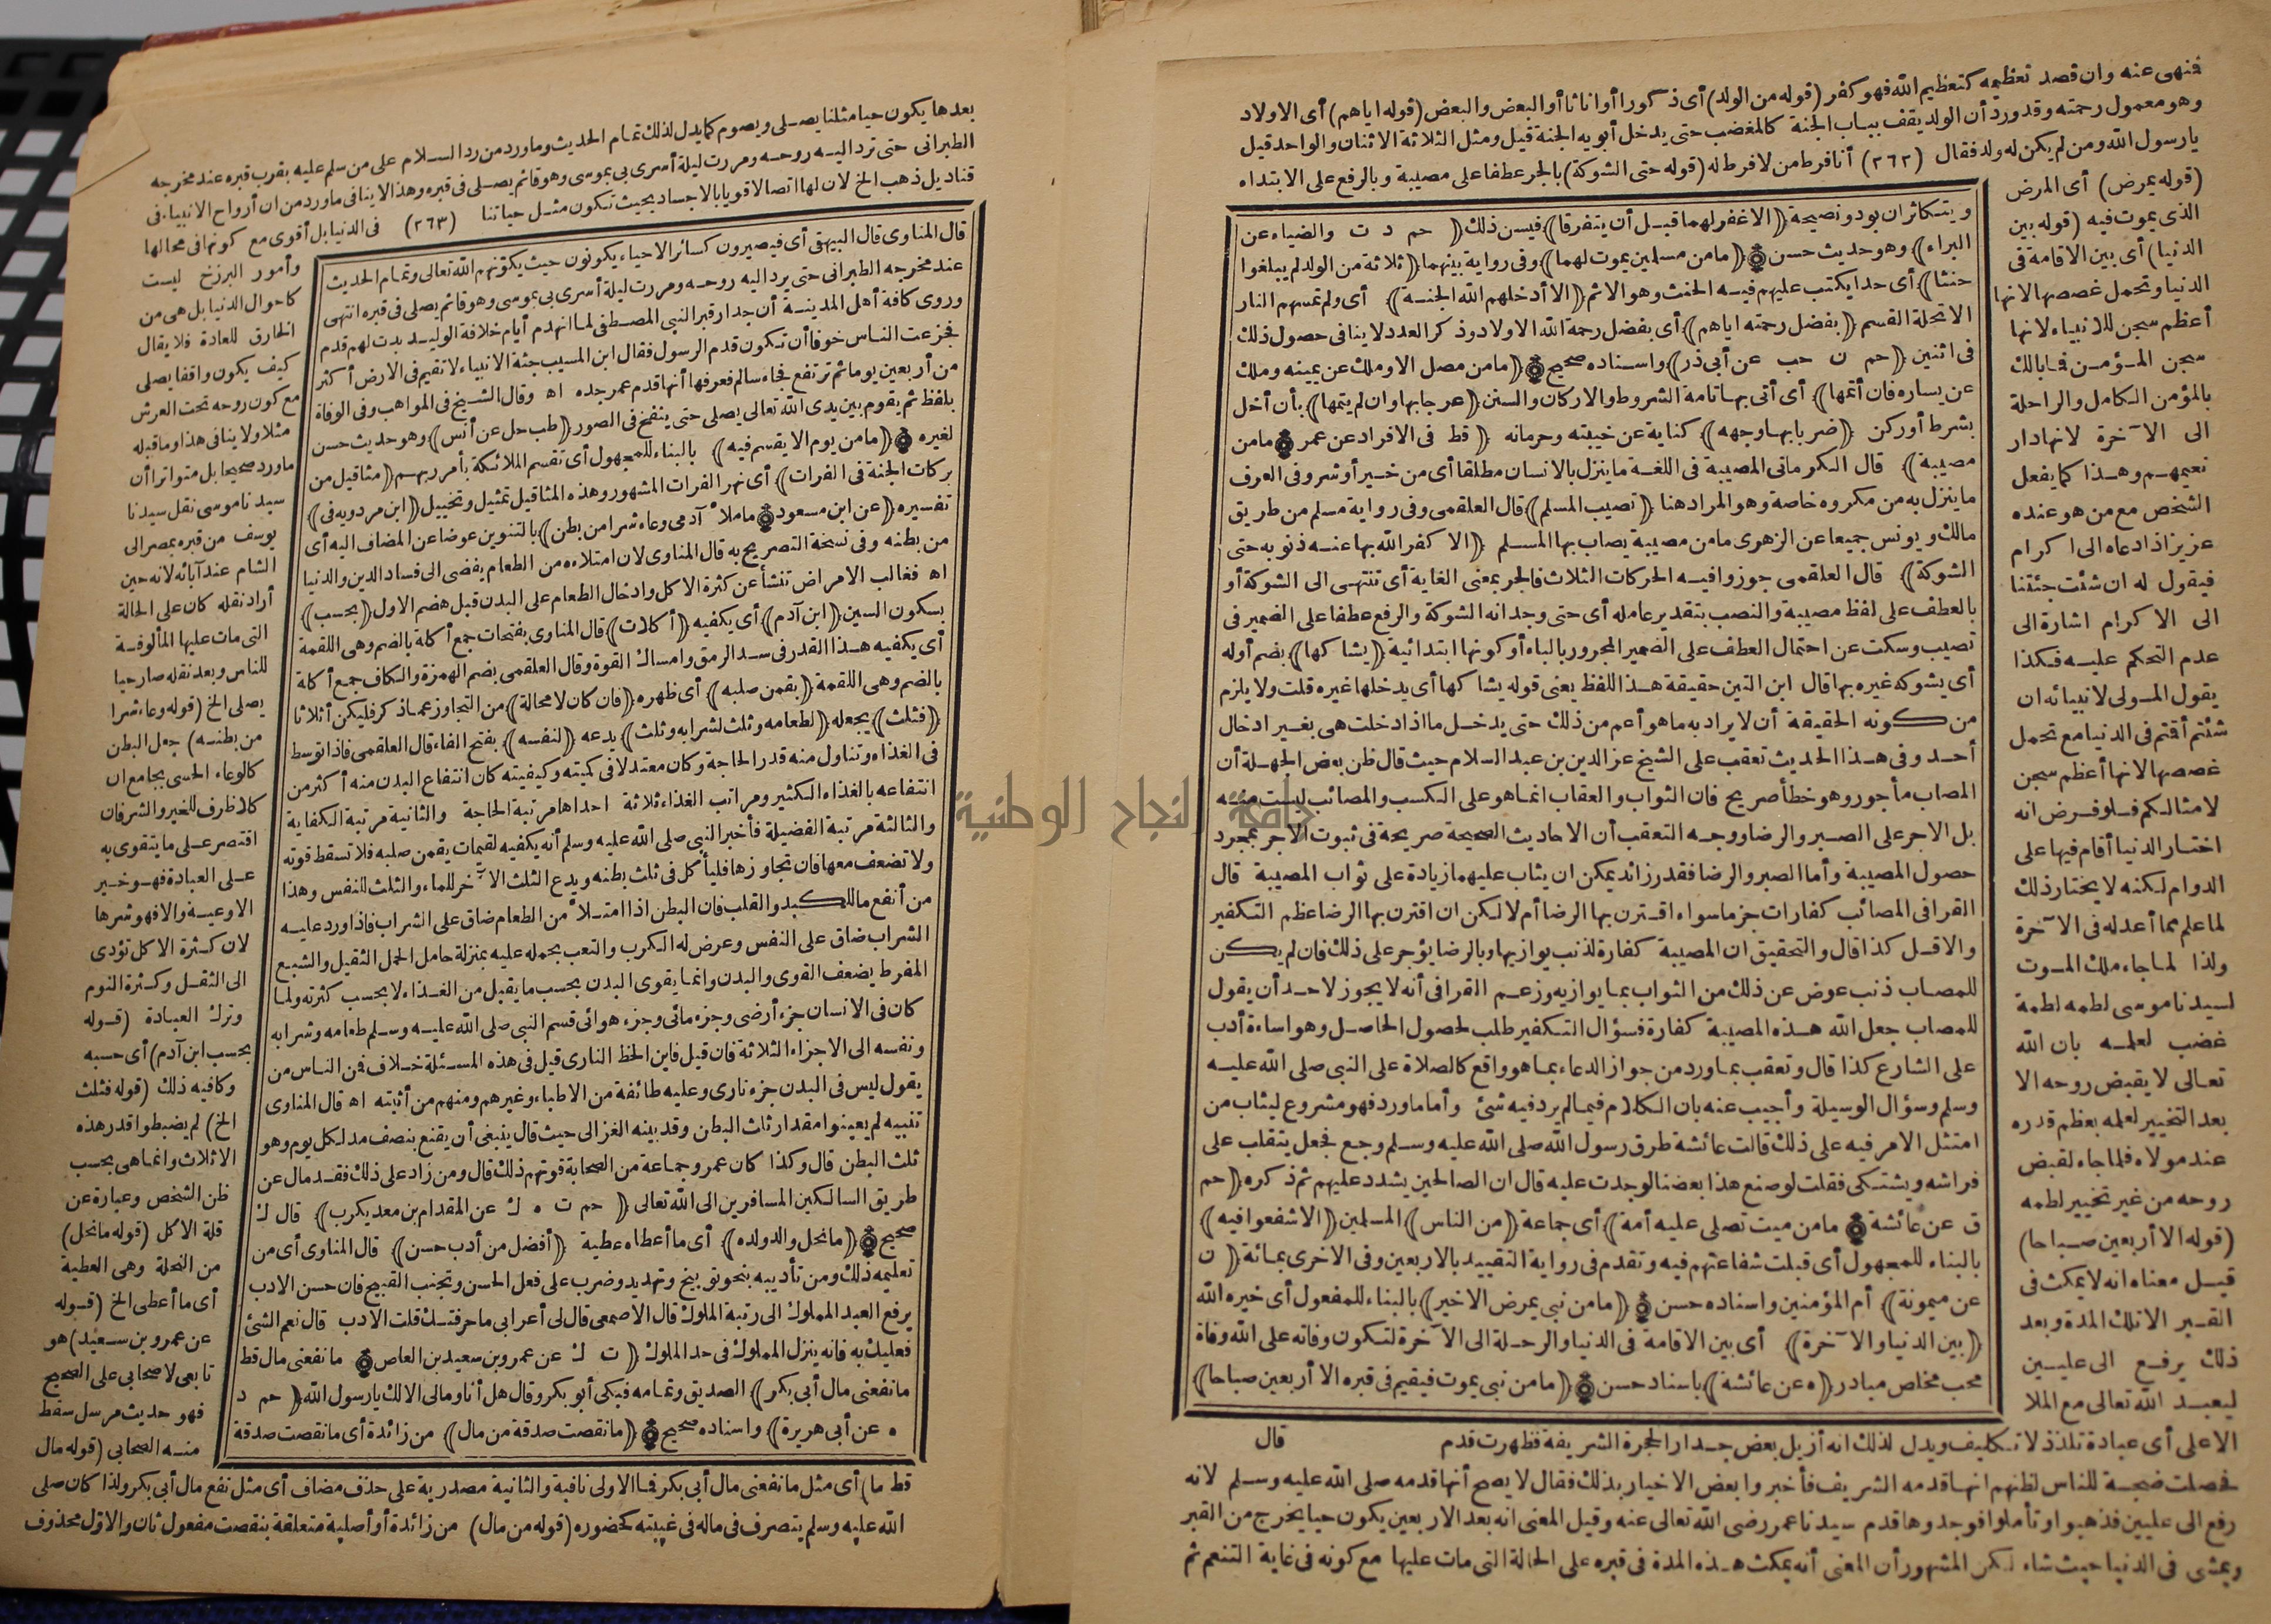 فنهى عنه وان قصد تعظيمه كتعظيم الله فهو كفر (قوله من الولد) أى ذكورا أو اناثا أو البعض والبعض (قوله اياهم) أى الاولاد
وهو معمول رحمته وقد ورد أن الولد يقف بباب الجنة كالمغضب حتى يدخل أبويه الجنة قيل ومثل الثلاثة الاثنان والواحد قيل
يا رسول الله ومن لم يكن له ولد فقال (٣٦٢) أنا فرط من لا فرط له (قوله حتى الشوكة) بالجر عطفا على مصيبة وبالرفع على الابتداء
(قوله يمرض) أى المرض
الذى يموت فيه (قوله بين
الدنيا) أى بين الاقامة فى
الدنيا وتحمل غصصها لانها
أعظم سجن للانبياء لانها
سجن المؤمن فما بالك
بالمؤمن الكامل والراحلة
الى الآخرة لانها دار
نعيمهم وهذا كما يفعل
الشخص مع من هو عنده
عزيز اذا دعاه الى اكرام
فيقول له ان شئت جئتنا
الى الاكرام اشارة الى
عدم التحكم عليه فكذا
يقول المولى لانبيائه ان
شئتم أقتم فى الدنيا مع تحمل
غصصها لانها أعظم سجن
لامثالكم فلو فرض انه
اختار الدنيا أقام فيها على
الدوام لكنه لا يختار ذلك
لما علم مما أعد له فى الآخرة
ولذا لما جاء ملك الموت
لسيدنا موسى لطمه لطمة
غضب لعلمه بان الله
تعالى لا يقبض روحه الا
بعد التخيير لعلمه بعظم قدره
عند مولاه فلما جاء لقبض
روحه من غير تخيير لطمه
(قوله الا أربعين صباحا)
قيل معناه انه لا يمكث فى
القبر الا تلك المدة وبعد
ذلك يرفع الى عليين
ليعبد الله تعالى مع الملا
ويتكاثران بود ونصيحة (الا غفر لهما قبل أن يتفرقا) فيسن ذلك (حم د ت والضياء عن
البراء) وهو حديث حسن (ما من مسلمين يموت لهما) وفى رواية بينهما (ثلاثة من الولد لم يبلغوا
حنثا) أى حدا يكتب عليهم فيه الحنث وهو الاثم (الا أدخلهم الله الجنة) أى ولم تمسهم النار
الا تحلة القسم (بفضل رحمته اياهم) أى بفضل رحمة الله الاولاد وذكر العدد لا ينافى حصول ذلك
فى اثنين (حم ن حب عن أبى ذر) واسناده صحيح (ما من مصل الا وملك عن يمينه وملك
عن يساره فان أتمها) أى أتى بها تامة الشروط والاركان والسنن (عرجا بها وان لم يتمها) بأن أخل
بشرط أو ركن (ضربا بها وجهه) كناية عن خيبته وحرمانه (قط فى الافراد عن عمر) ما من
مصيبة) قال الكرمانى المصيبة فى اللغة ما ينزل بالانسان مطلقا أى من خير أو شر وفى العرف
ما ينزل به من مكروه خاصة وهو المراد هنا (تصيب المسلم) قال العلقمى وفى رواية مسلم من طريق
مالك ويونس جميعا عن الزهرى ما من مصيبة يصاب بها المسلم (الا كفر الله بها عنه ذنوبه حتى
الشوكة) قال العلقمى جوزوا فيه الحركات الثلاث فالجر بمعنى الغاية أى تنتهى الى الشوكة أو
بالعطف على لفظ مصيبة والنصب بتقدير عامله أى حتى وجدانه الشوكة والرفع عطفا على الضمير فى
تصيب وسكت عن احتمال العطف على الضمير المجرور بالباء أو كونها ابتدائية (يشاكها) بضم أوله
أى يشوكه غيره بها قال ابن التين حقيقة هذا اللفظ يعنى قوله يشاكها أى يدخلها غيره قلت ولا يلزم
من كونه الحقيقة أن لا يراد به ما هو أعم من ذلك حتى يدخل ما اذا دخلت هى بغير ادخال
أحد وفى هذا الحديث تعقب على الشيخ عز الدين بن عبد السلام حيث قال ظن بعض الجهلة أن
المصاب مأجور وهو خطأ صريح فان الثواب والعقاب انما هو على الكسب والمصائب ليست منه
بل الاجر على الصبر والرضا ووجه التعقب أن الاحاديث الصحيحة صريحة فى ثبوت الاجر بمجرد
حصول المصيبة وأما الصبر والرضا فقدر زائد يمكن ان يثاب عليهما زيادة على ثواب المصيبة قال
القرافى المصائب كفارات جزما سواء اقترن بها الرضا أم لا لكن ان اقترن بها الرضا عظم التكفير
والا قل كذا قال والتحقيق ان المصيبة كفارة لذنب يوازيها وبالرضا يؤجر على ذلك فان لم يكن
للمصاب ذنب عوض عن ذلك من الثواب بما يوازيه وزعم القرافى أنه لا يجوز لاحد أن يقول
للمصاب جعل الله هذه المصيبة كفارة فسؤال التكفير طلب لحصول الحاصل وهو اساءة أدب
على الشارع كذا قال وتعقب بما ورد من جواز الدعاء بما هو واقع كالصلاة على النبى صلى الله عليه
وسلم وسؤال الوسيلة وأجيب عنه بان الكلام فيما لم يرد فيه شئ وأما ما ورد فهو مشروع ليثاب من
امتثل الامر فيه على ذلك قالت عائشة طرق رسول الله صلى الله عليه وسلم وجع فجعل يتقلب على
فراشه ويشتكى فقلت لو صنع هذا بعضنا لوجدت عليه قال ان الصالحين يشدد عليهم ثم ذكره (حم
ق عن عائشة) ما من ميت تصلى عليه أمة) أى جماعة (من الناس) المسلمين (الا شفعوا فيه)
بالبناء للمجهول أى قبلت شفاعتهم فيه وتقدم فى رواية التقييد بالاربعين وفى الاخرى بمائة (ن
عن ميمونة) أم المؤمنين واسناده حسن (ما من نبى يمرض الا خير) بالبناء للمفعول أى خيره الله
(بين الدنيا والآخرة) أى بين الاقامة فى الدنيا والرحلة الى الآخرة لتكون وفاته على الله وفاة
محب مخلص مبادر (ه عن عائشة) باسناد حسن (ما من نبى يموت فيقيم فى قبره الا أربعين صباحا)
الاعلى أى عبادة تلذذ لا تكليف ويدل لذلك انه أزيل بعض جدار الحجرة الشريفة فظهرت قدم قال
فحصلت ضجة للناس لظنهم انها قدمه الشريف فأخبروا بعض الاخيار بذلك فقال لا يصح أنها قدمه صلى الله عليه وسلم لانه
رفع الى عليين فذهبوا وتأملوا فوجدوها قدم سيدنا عمر رضى الله تعالى عنه وقيل المعنى انه بعد الاربعين يكون حيا يخرج من القبر
ويمشى فى الدنيا حيث شاء لكن المشهور أن المعنى أنه يمكث هذه المدة فى قبره على الحالة التى مات عليها مع كونه فى غاية التنعم ثم
بعدها يكون حيا مثلنا يصلى ويصوم كما يدل لذلك تمام الحديث وما ورد من رد السلام على من سلم عليه بقرب قبره عند مخرجه
الطبرانى حتى ترد اليه روحه ومررت ليلة أسرى بى بموسى وهو قائم يصلى فى قبره وهذا لا ينافى ما ورد من ان أرواح الانبياء فى
قناديل ذهب الخ لان لها اتصالا قويا بالاجساد بحيث تكون مثل حياتنا (٣٦٣) فى الدنيا بل أقوى مع كونها فى محالها
قال المناوى قال البيهقى أى فيصيرون كسائر الاحياء يكونون حيث يكونهم الله تعالى وتمام الحديث
عند مخرجه الطبرانى حتى يرد اليه روحه ومررت ليلة أسرى بى بموسى وهو قائم يصلى فى قبره انتهى
وروى كافة أهل المدينة أن جدار قبر النبى المصطفى لما انهدم أيام خلافة الوليد بدت لهم قدم
فجزعت الناس خوفا أن تكون قدم الرسول فقال ابن المسيب جثة الانبياء لا تقيم فى الارض أكثر
من أربعين يوما ثم ترتفع فجاء سالم فعرفها أنها قدم عمر جده اه وقال الشيخ فى المواهب وفى الوفاة
بلفظ ثم يقوم بين يدى الله تعالى يصلى حتى ينفخ فى الصور (طب حل عن أنس) وهو حديث حسن
لغيره (ما من يوم الا يقسم فيه) بالبناء للمجهول أى تقسم الملائكة بأمر ربهم (مثاقيل من
بركات الجنة فى الفرات) أى نهر الفرات المشهور وهذه المثاقيل تمثيل وتخييل (ابن مردويه فى)
تفسيره (عن ابن مسعود) ما ملأ آدمى وعاء شرا من بطن) بالتنوين عوضا عن المضاف اليه أى
من بطنه وفى نسخة التصريح به قال المناوى لان امتلاءه من الطعام يفضى الى فساد الدين والدنيا
اه فغالب الامراض تنشأ عن كثرة الاكل وادخال الطعام على البدن قبل هضم الاول (بحسب)
بسكون السين (ابن آدم) أى يكفيه (أكلات) قال المناوى بفتحات جمع أكلة بالضم وهى اللقمة
أى يكفيه هذا القدر فى سد الرمق وامساك القوة وقال العلقمى بضم الهمزة والكاف جمع أكلة
بالضم وهى اللقمة (يقمن صلبه) أى ظهره (فان كان لا محالة) من التجاوز عما ذكر فليكن أثلاثا
(فثلث) يجعله (لطعامه وثلث لشرابه وثلث) يدعه (لنفسه) بفتح الفاء قال العلقمى فاذا توسط
فى الغذاء وتناول منه قدر الحاجة وكان معتدلا فى كميته وكيفيته كان انتفاع البدن منه أكثر من
انتفاعه بالغذاء الكثير ومراتب الغذاء ثلاثة احداها مرتبة الحاجة والثانية مرتبة الكفاية
والثالثة مرتبة الفضيلة فأخبر النبى صلى الله عليه وسلم أنه يكفيه لقيمات يقمن صلبه فلا تسقط قوته
ولا تضعف معها فان تجاوزها فليأكل فى ثلث بطنه ويدع الثلث الآخر للماء والثلث للنفس وهذا
من أنفع ما للكبد والقلب فان البطن اذا امتلأ من الطعام ضاق على الشراب فاذا ورد عليه
الشراب ضاق على النفس وعرض له الكرب والتعب بحمله عليه بمنزلة حامل الحمل الثقيل والشبع
المفرط يضعف القوى والبدن وانما يقوى البدن بحسب ما يقبل من الغذاء لا بحسب كثرته ولما
كان فى الانسان جزء أرضى وجزء مائى وجزء هوائى قسم النبى صلى الله عليه وسلم طعامه وشرابه
ونفسه الى الاجزاء الثلاثة فان قيل فاين الحظ النارى قيل فى هذه المسئلة خلاف فمن الناس من
يقول ليس فى البدن جزء نارى وعليه طائفة من الاطباء وغيرهم ومنهم من أثبته اه قال المناوى
تنبيه لم يعينوا مقدار ثلث البطن وقد بينه الغزالى حيث قال ينبغى أن يقنع بنصف مد لكل يوم وهو
ثلث البطن قال وكذا كان عمر وجماعة من الصحابة قوتهم ذلك قال ومن زاد على ذلك فقد مال عن
طريق السالكين المسافرين الى الله تعالى (حم ت ه ك عن المقدام بن معد يكرب) قال ك
صحيح (ما نحل والد ولده) أى ما أعطاه عطية (أفضل من أدب حسن) قال المناوى أى من
تعليمه ذلك ومن تأديبه بنحو توبيخ وتهديد وضرب على فعل الحسن وتجنب القبيح فان حسن الادب
يرفع العبد المملوك الى رتبة الملوك قال الاصمعى قال لى أعرابى ما حرفتك قلت الادب قال نعم الشئ
فعليك به فانه ينزل المملوك فى حد الملوك (ت ك عن عمرو بن سعيد بن العاص) ما نفعنى مال قط
ما نفعنى مال أبى بكر) الصديق وتمامه فبكى أبو بكر وقال هل أنا ومالى الا لك يا رسول الله (حم د
ه عن أبى هريرة) واسناده صحيح (ما نقصت صدقة من مال) من زائدة أى ما نقصت صدقة
وأمور البرزخ ليست
كاحوال الدنيا بل هى من
الخارق للعادة فلا يقال
كيف يكون واقفا يصلى
مع كون روحه تحت العرش
مثلا ولا ينافى هذا وما قبله
ما ورد صحيحا بل متواترا أن
سيدنا موسى نقل سيدنا
يوسف من قبره بمصر الى
الشام عند آبائه لانه حين
أراد نقله كان على الحالة
التى مات عليها المألوفة
للناس وبعد نقله صار حيا
يصلى الخ (قوله وعاء شرا
من بطنه) جعل البطن
كالوعاء الحسى بجامع ان
كلا ظرف للغير والشر فان
اقتصر على ما يتقوى به
على العبادة فهو خير
الاوعية والا فهو شرها
لان كثرة الاكل تؤدى
الى الثقل وكثرة النوم
وترك العبادة (قوله
بحسب ابن آدم) أى حسبه
وكافيه ذلك (قوله فثلث
الخ) لم يضبطوا قدر هذه
الاثلاث وانما هى بحسب
ظن الشخص وعبارة عن
قلة الاكل (قوله ما نحل)
من النحلة وهى العطية
أى ما أعطى الخ (قوله
عن عمرو بن سعيد) هو
تابعى لا صحابى على الصحيح
فهو حديث مرسل سقط
منه الصحابى (قوله مال
قط ما) أى مثل ما نفعنى مال أبى بكر فما الاولى نافية والثانية مصدرية على حذف مضاف أى مثل نفع مال أبى بكر ولذا كان صلى
الله عليه وسلم يتصرف فى ماله فى غيبته كحضوره (قوله من مال) من زائدة أو أصلية متعلقة بنقصت مفعول ثان والاول محذوف
جامعة النجاح الوطنية